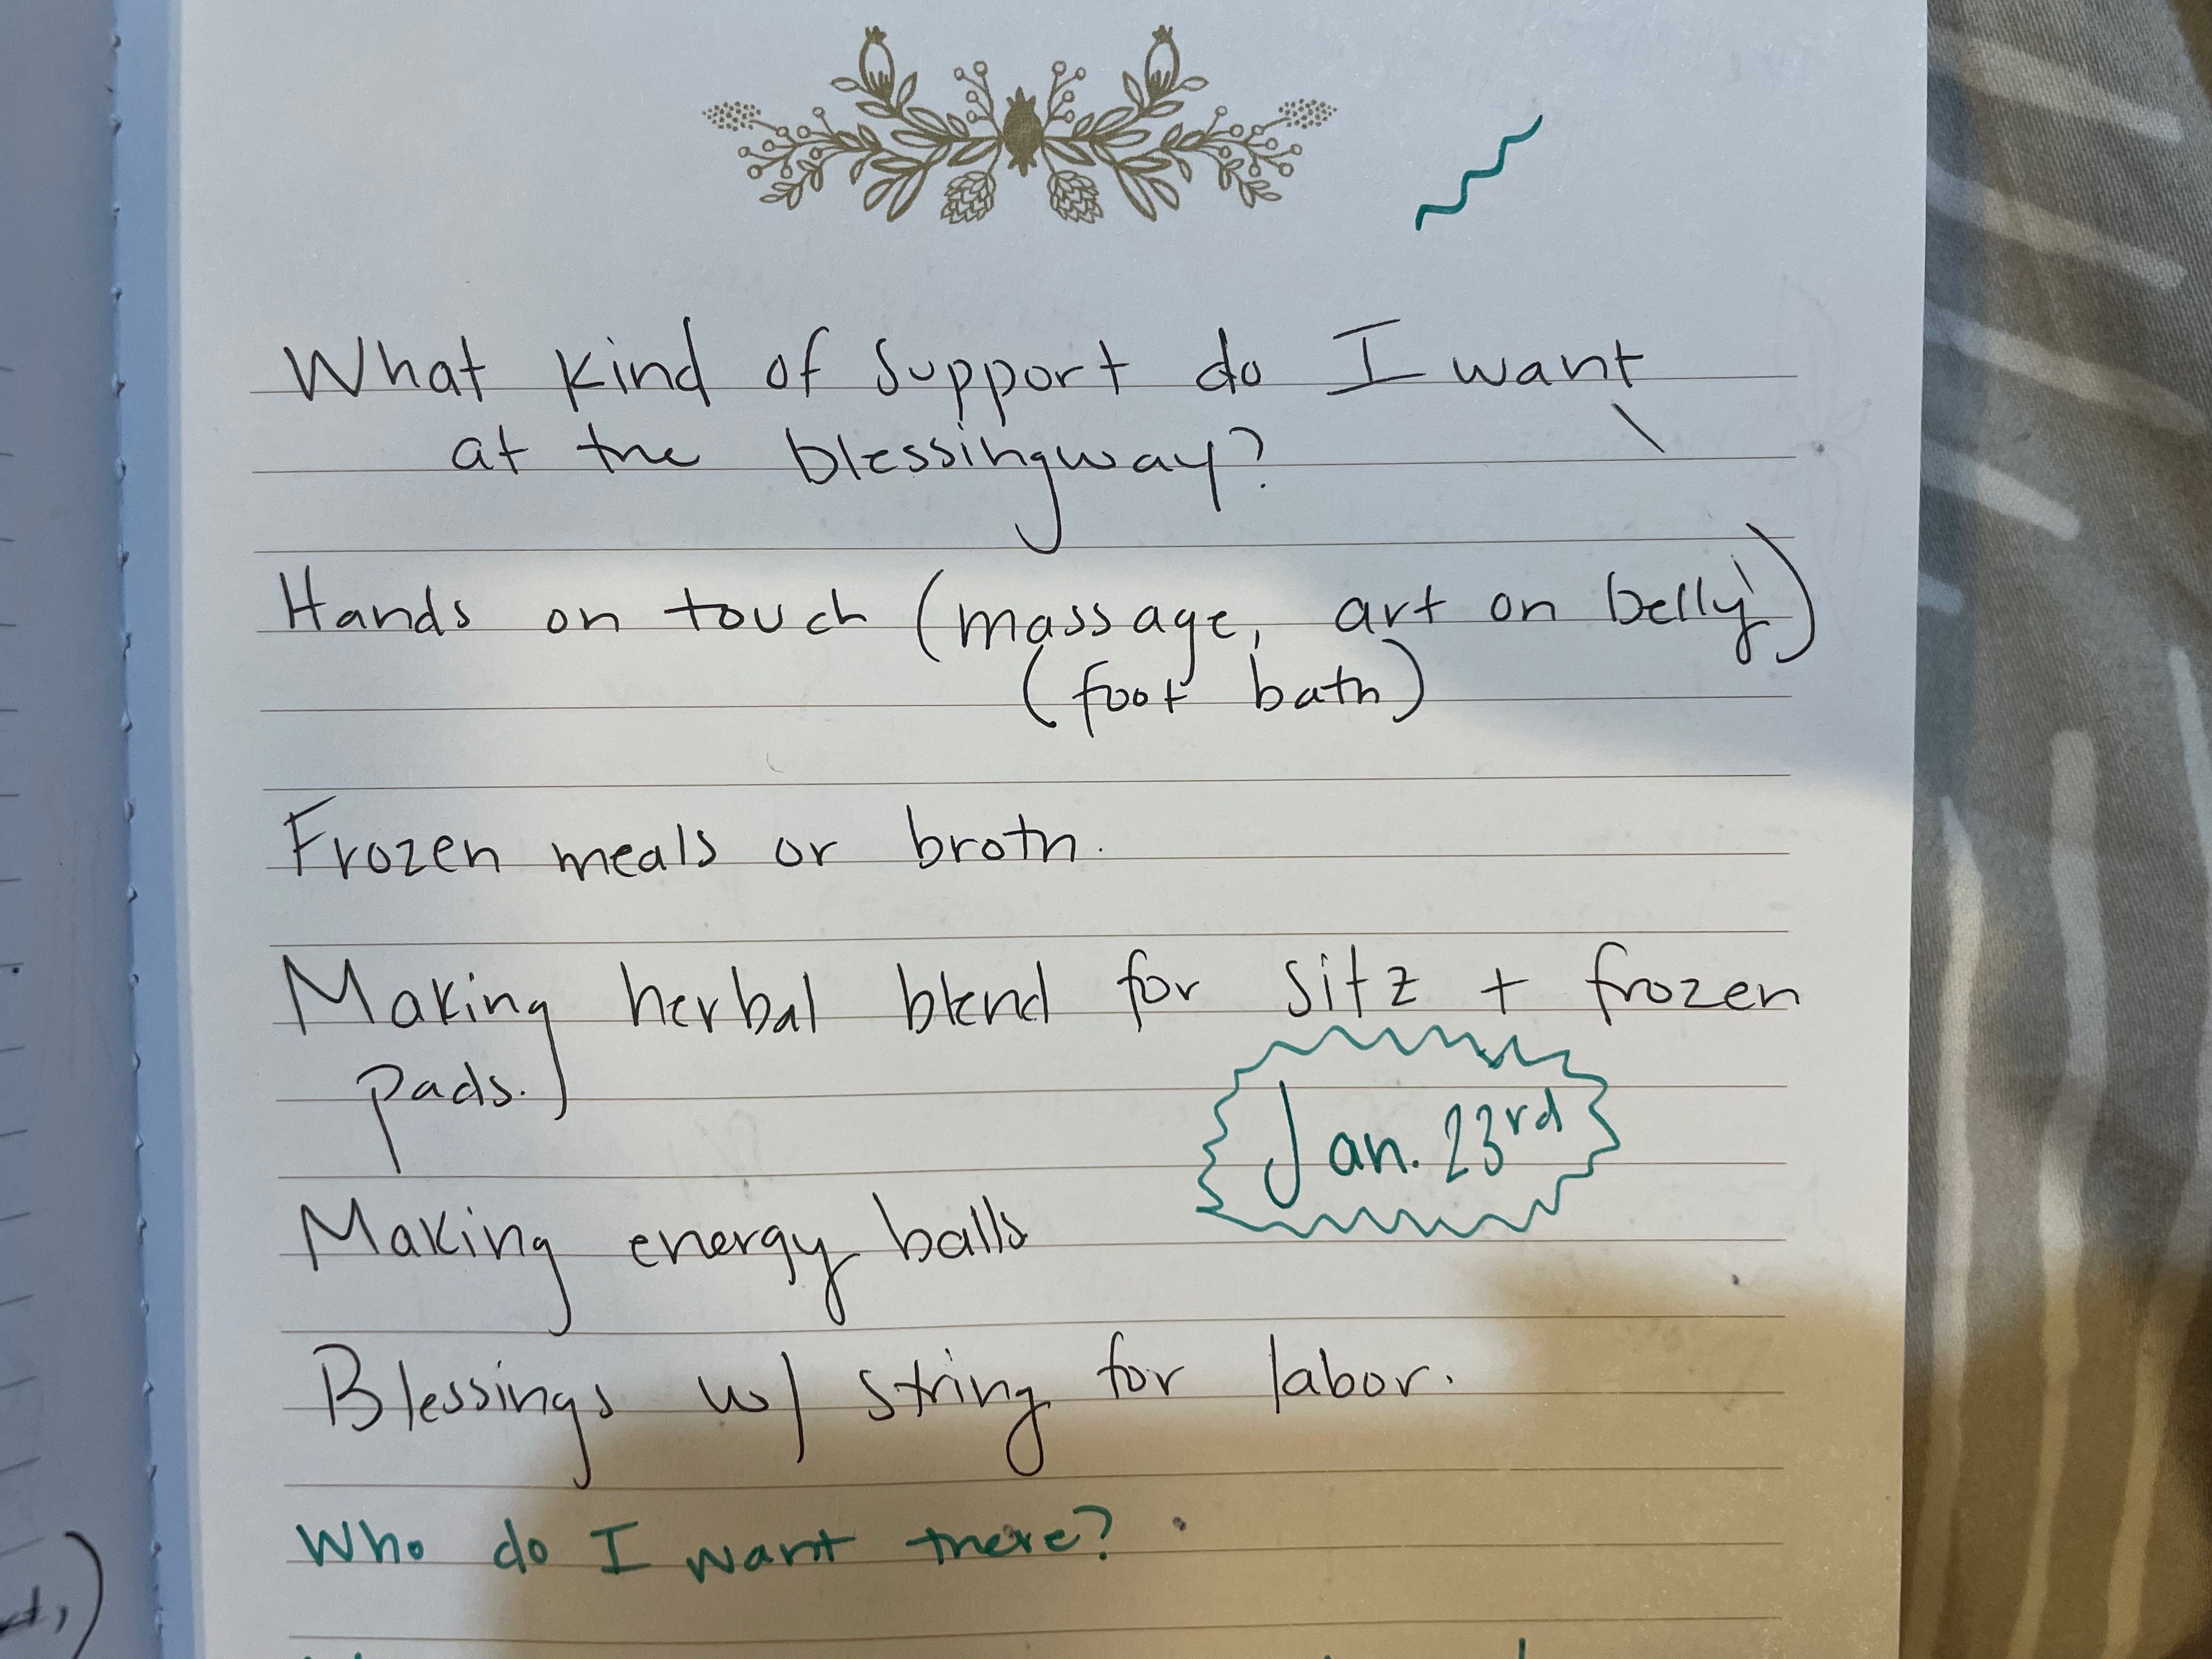 What kind of support do I want
at the blessingway?
Hands on touch (massage, art on belly)
(foot bath)
Frozen meals or broth.
Making herbal blend for sitz + frozen
pads.
Jan. 23rd
Making energy balls
Blessings w/ string for labor.
Who do I want there?